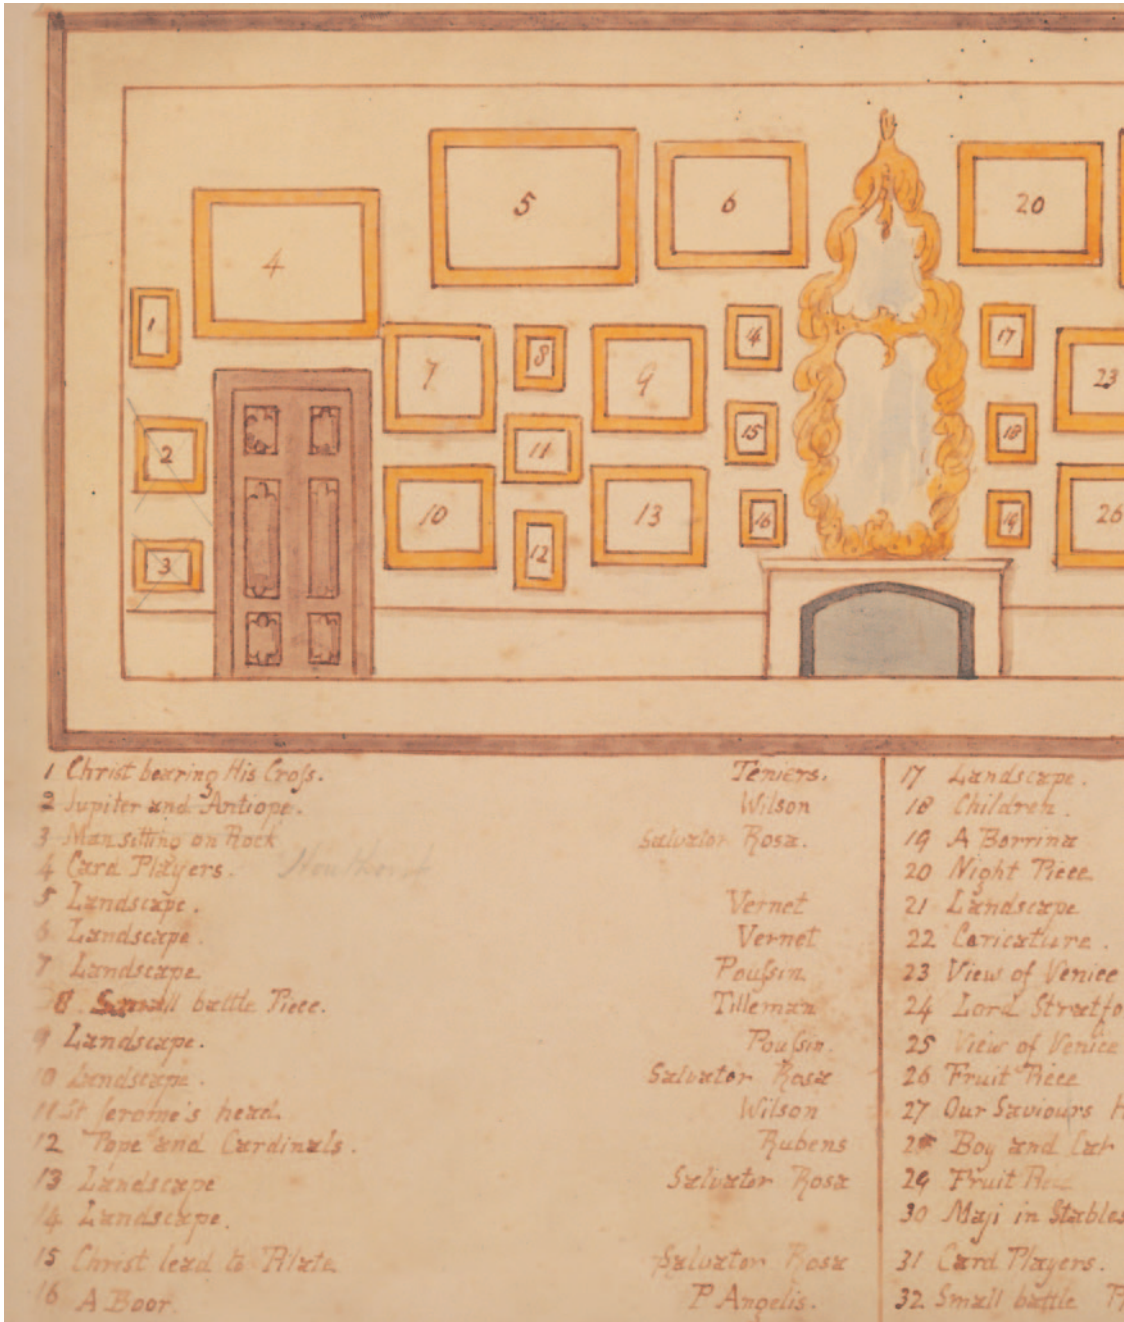 5
6
20
4
1
7
8
9
14
17
23
2
11
15
18
10
13
16
19
26
3
12
1 Christ bearing His Croſs. Teniers.
2 Jupiter and Antiope. Wilson
3 Man sitting on Rock Salvator Rosa.
4 Card Players.
5 Landscape. Vernet
6 Landscape. Vernet
7 Landscape Pouſsin
8 Small battle Piece. Tilleman
9 Landscape. Pouſsin.
10 Landscape. Salvator Rosa
11 St Jerome's head. Wilson
12 Pope and Cardinals. Rubens
13 Landscape Salvator Rosa
14 Landscape.
15 Christ lead to Pilate Salvator Rosa
16 A Boor P Angelis.
17 Landscape.
18 Children.
19 A Borrina
20 Night Piece
21 Landscape
22 Caricature.
23 View of Venice
24 Lord Stratfo
25 View of Venice
26 Fruit Piece
27 Our Saviours H
28 Boy and Cat
29 Fruit Piece
30 Maji in Stables
31 Card Players.
32 Small battle P